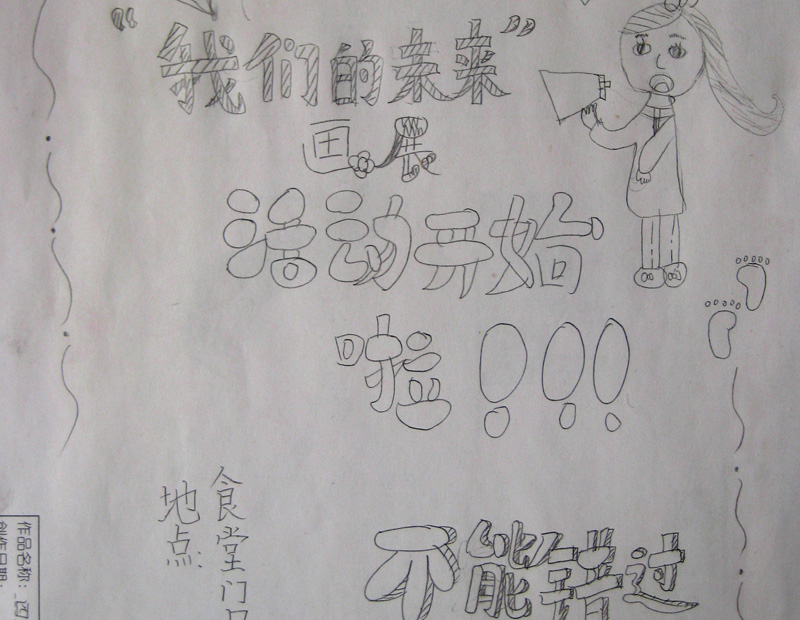 “我们的未来”
画展
活动开始
啦！！！
地点：
食堂门口
不能错过
作品名称：
创作日期：